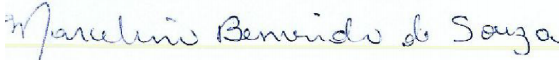 Marcelino Benvindo de Souza